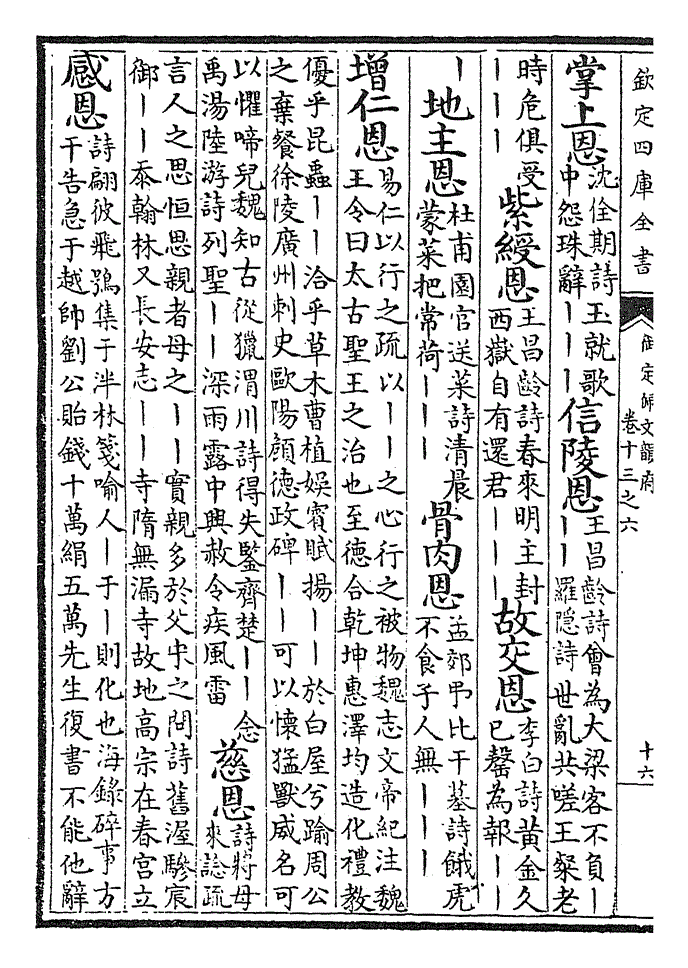 欽定四庫全書
御定佩文韻府
卷十三之六
十六
掌上恩
沈佺期詩玉就歌
中怨珠辭｜｜｜
信陵恩
王昌齡詩曾為大梁客不負｜
｜｜羅隱詩世亂共嗟王粲老
時危俱受
｜｜｜
紫綬恩
王昌齡詩春來明主封
西嶽自有還君｜｜｜
故交恩
李白詩黄金久
已罄為報｜｜
｜
地主恩
杜甫園官送菜詩清晨
蒙菜把常荷｜｜｜
骨肉恩
孟郊弔比干墓詩餓虎
不食子人無｜｜｜
增仁恩
易仁以行之疏以｜｜之心行之被物魏志文帝紀注魏
王令曰太古聖王之治也至德合乾坤惠澤均造化禮教
優乎昆蟲｜｜洽乎草木曹植娯賓賦揚｜｜於白屋兮踰周公
之棄餐徐陵廣州刺史歐陽頠德政碑｜｜可以懷猛獸威名可
以懼啼兒魏知古從獵渭川詩得失鑒齊楚｜｜念
禹湯陸游詩列聖｜｜深雨露中興赦令疾風雷
慈恩
詩將母
來諗疏
言人之思恒思親者母之｜｜實親多於父宋之問詩舊渥驂宸
御｜｜忝翰林又長安志｜｜寺隋無漏寺故地高宗在春宫立
感恩
詩翩彼飛鴞集于泮林箋喻人｜于｜則化也海錄碎事方
干告急于越帥劉公貽錢十萬絹五萬先生復書不能他辭